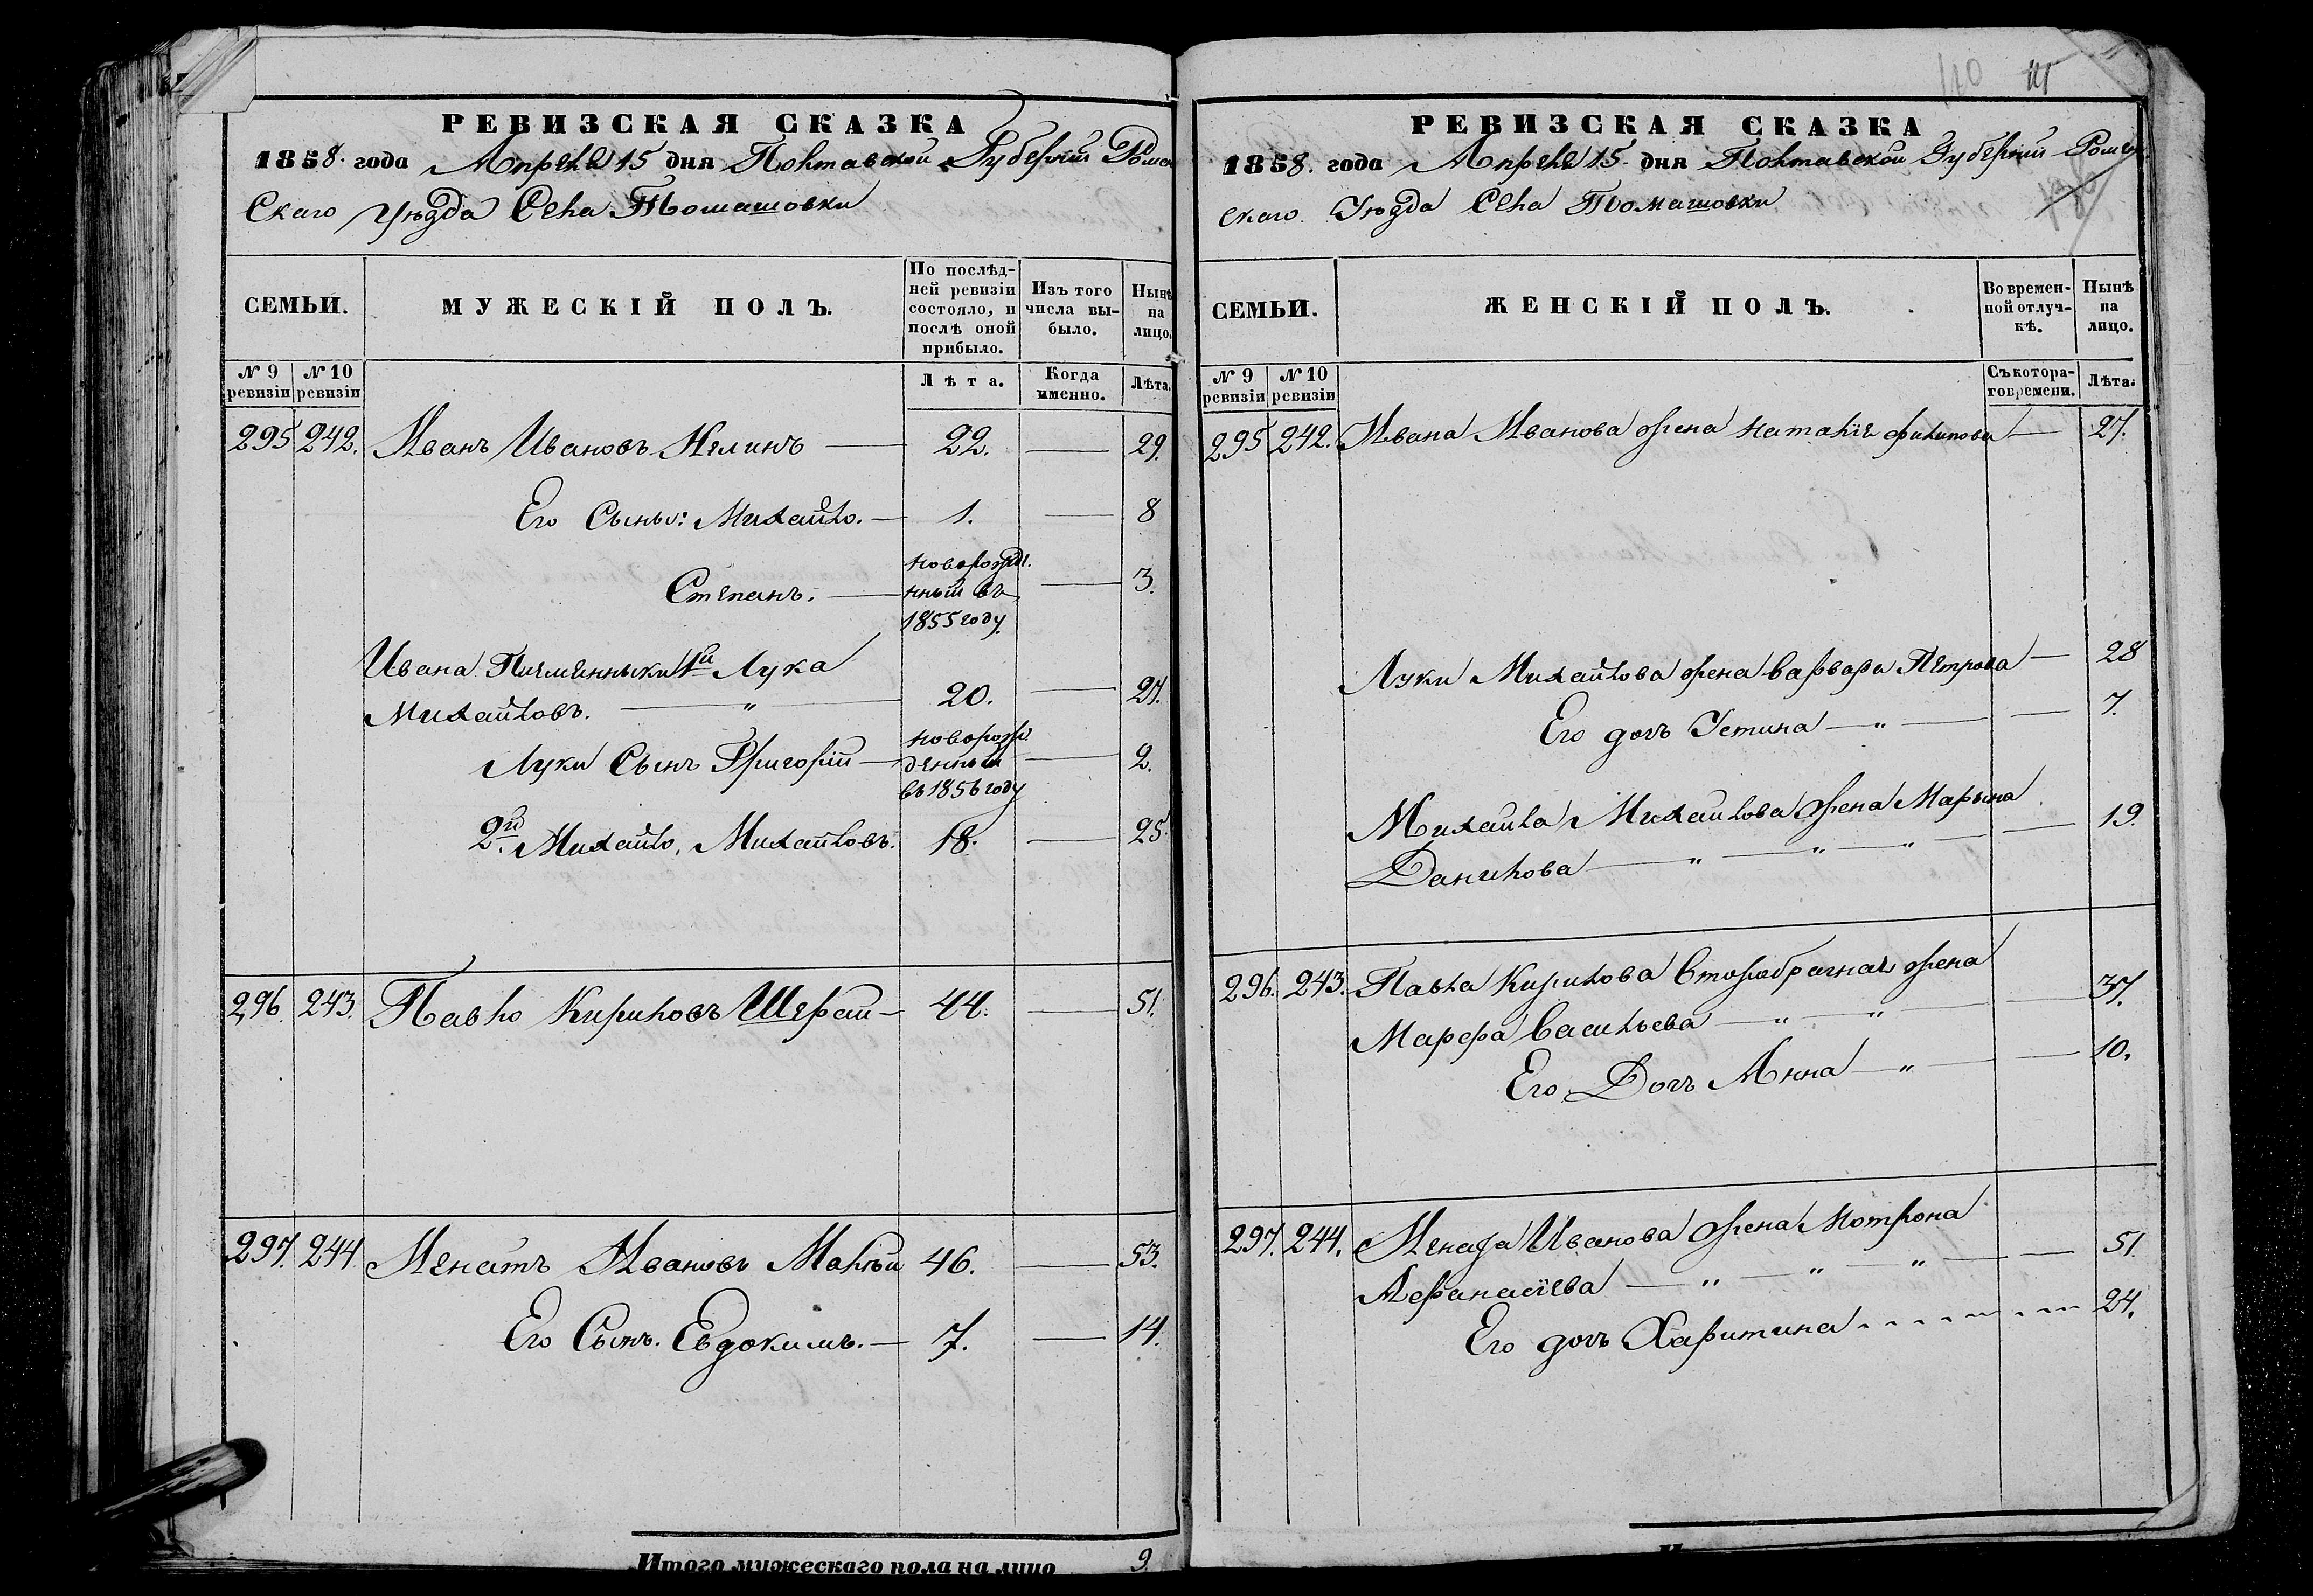 РЕВИЗСКАЯ СКАЗКА
1858. года Апреля 15 дня Полтавской Губернии Ромен
скаго Уѣзда Села Томашовки
СЕМЬИ.
МУЖЕСКІЙ ПОЛЪ.
По послѣд-
ней ревизіи
состояло, и
послѣ оной
прибыло.
Изъ того
числа вы-
было.
Нынѣ
на
лицо.
№ 9 ревизіи
№ 10 ревизіи
Лѣта.
Когда
именно.
Лѣта.
295 242. Иванъ Ивановъ — 22. — 29.
Его Сыны: Михайло. — 1. — 8
Степанъ. — новорожде-
нный въ — 3.
1855 году.
Ивана Племенныки 1й Лука
Михайловъ. — „ — 20. — 27.
Луки Сынъ Григорій — новорож-
денный — 2.
въ 1856 году
2й Михайло, Михайловъ. 18. — 25.
296 243. Павло Кириловъ Шерай — 44. — 51.
297. 244. Ивановъ 46. — 53.
Его Сынъ. Евдокимъ. — 7. — 14.
Итого мужескаго пола на лицо 9.
110
РЕВИЗСКАЯ СКАЗКА
1858. года Апреля 15. дня Полтавской Губернии Ромен
скаго Уѣзда Села Томашовки
СЕМЬИ.
ЖЕНСКІЙ ПОЛЪ.
Во времен-
ной отлуч-
кѣ.
Нынѣ
на
лицо.
№ 9 ревизіи
№ 10 ревизіи
Съ котора-
го времени.
Лѣта.
295 242. Ивана Иванова жена Наталіе Филипова — 27.
Луки Михайлова жена Варвара Петрова — 28
Его дочь Устина — „ — 7.
Михаила Михаилова жена Марына
Данилова — „ — „ — „ — 19.
296. 243. Павла Кирилова второбрачная жена
Марфа Васильева — „ — „ — 37.
Его Дочь Анна — „ — 10.
297. 244. Иванова жена Мотрона
Афанасіева — „ — „ — „ — 51.
Его дочь Харитина 24.